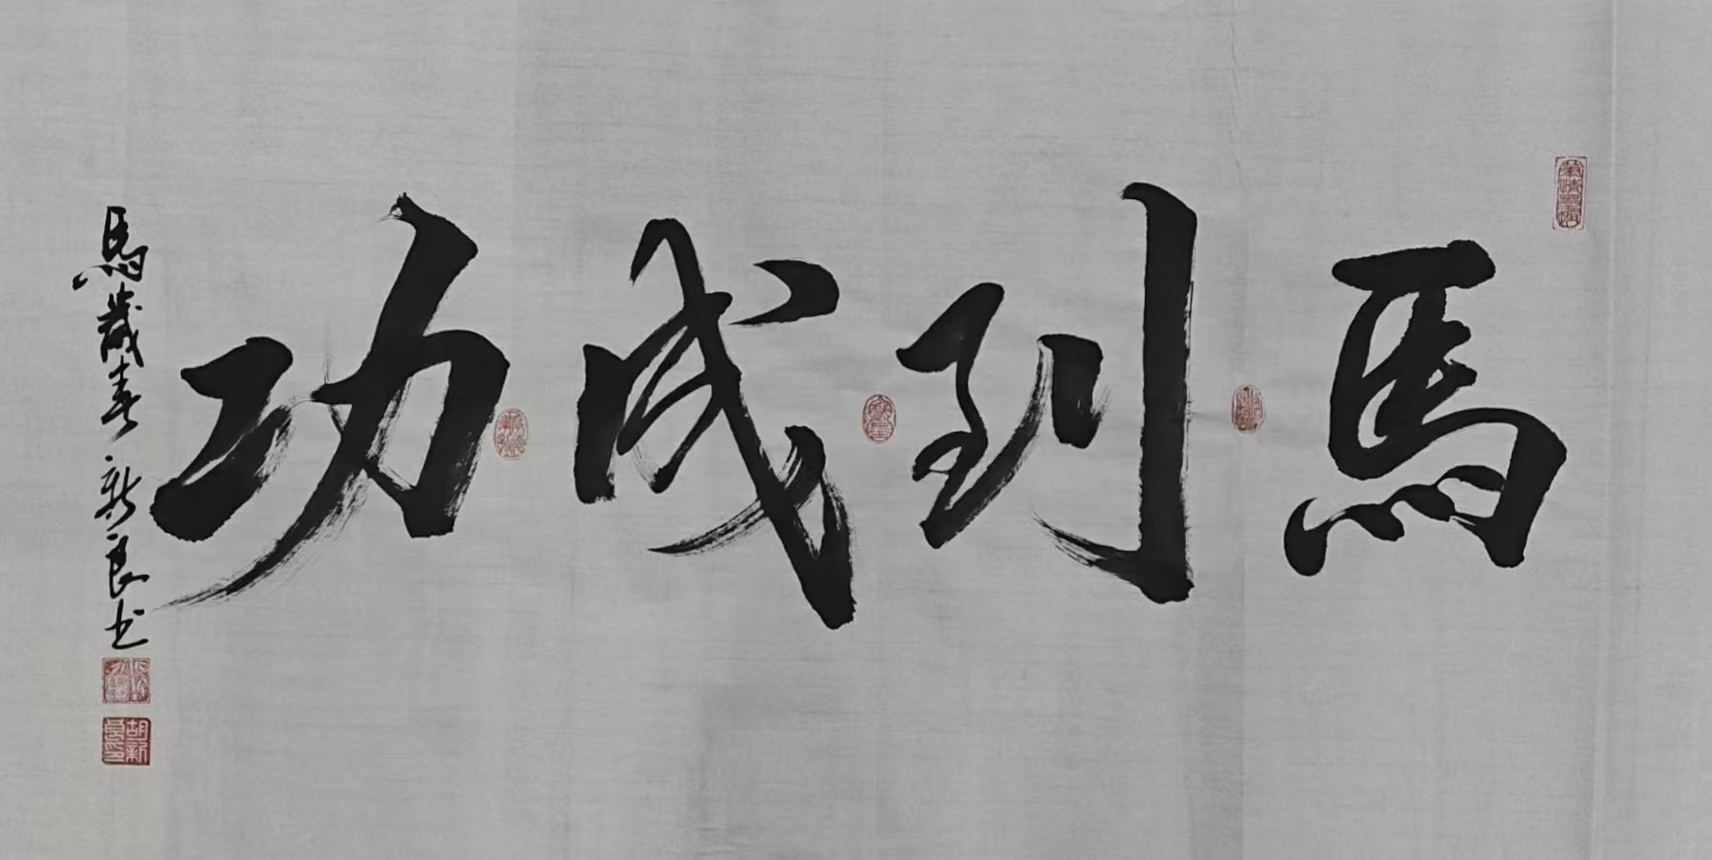 馬到成功
馬歲春新良书
胡新良印